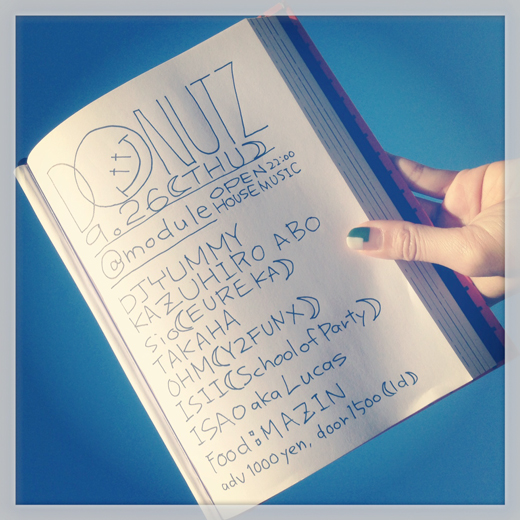 DONUTZ
9.26(THU)
OPEN 22:00
@module HOUSE MUSIC
DJ YUMMY
KAZUHIRO ABO
Sio(EUREKA)
TAKAHA
OHM(YZFUNX)
ISII(School of Party)
ISAO aka Lucas
Food: MAZIN
adv 1000yen, door 1500(1d)